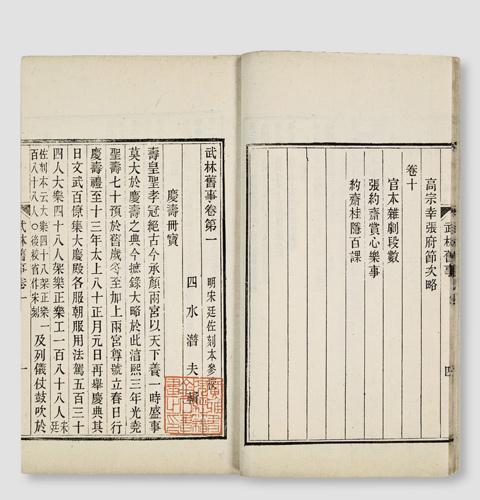 武林舊事
四
高宗幸張府節次略
卷十
官本雜劇段數
張約齋賞心樂事
約齋桂隱百課
武林舊事卷第一 明宋廷佐刻本參校
四水潛夫輯
慶壽冊寶
壽皇聖孝冠絕古今承顏兩宮以天下養一時盛事
莫大於慶壽之典今摭錄大略於此湻熙三年光堯
聖壽七十預於舊歲冬至加上兩宮尊號立春日行
慶壽禮至十三年太上八十正月元日再舉慶典其
日文武百僚集大慶殿各服朝服用法駕五百三十
四人大樂四十八人架樂正樂工一百八十八人宋廷
佐刻本云大樂四十八架樂正樂一百八十八人○後校省作宋刻及列儀仗鼓吹於
武林舊事卷一
一